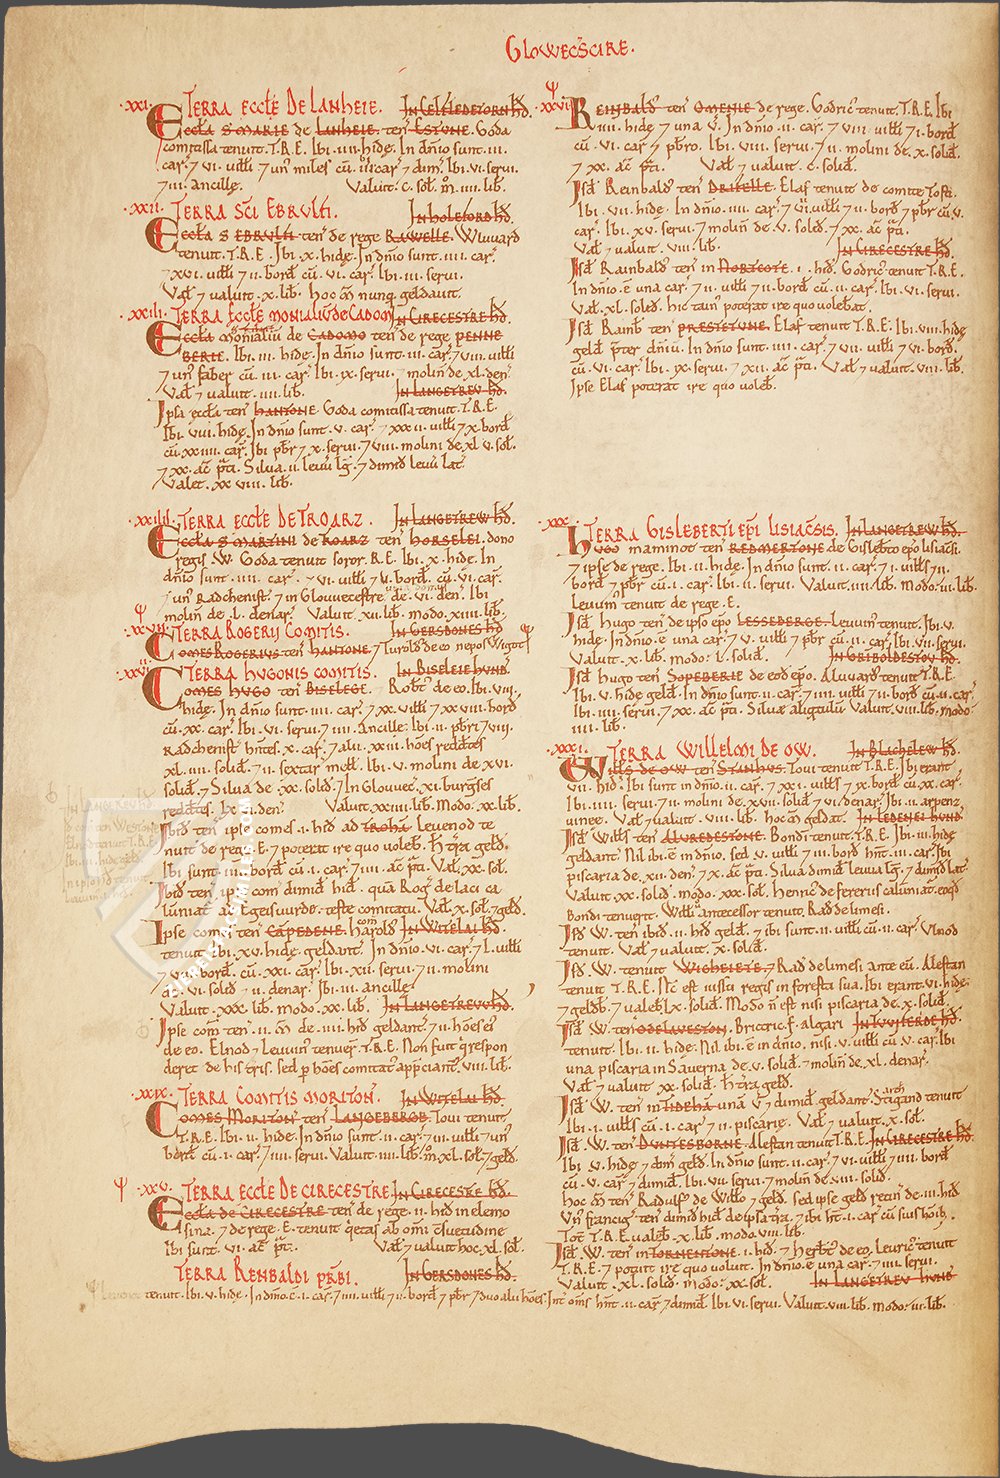 GLOWECSCIRE.
.XXI. TERRA ECCLE DE LANHEIE. IN CELFLEDETORN HD.
Eccla S MARIE de LANHEIE ten ESTUNE. Goda
comitissa tenuit. T.R.E. Ibi .IIII. hidę. In dnio sunt .III.
car. 7 VI. uilli 7 un miles cu .III. car 7 dim. Ibi VI. serui.
7 III. ancille. Valuit. C. sol. m .IIII. lib.
.XXII. TERRA SCI EBRULFI. IN HOLEFORD HD.
Eccla S EBRULFI ten de rege RAWELLE. Wluuard
tenuit. T.R.E. Ibi .X. hidę. In dnio sunt .IIII. car.
7 XVI. uilli 7 II. bord cu .VI. car. Ibi .III. serui.
Val 7 ualuit .X. lib. Hoc m nunq geldauit.
.XXIII. TERRA ECCLE MONIALIU DE CADOM IN CIRECESTRE HD.
Eccla monialiu de CADOMO ten de rege PENNE
BERIE. Ibi .III. hidę. In dnio sunt .III. car. 7 VIII. uilli
7 un faber cu .III. car. Ibi .IX. serui. 7 molin de .XL. den.
Val 7 ualuit .IIII. lib. IN LANGETREV HD.
Ipsa eccla ten HANTONE. Goda comitissa tenuit. T.R.E.
Ibi .VIII. hidę. In dnio sunt .V. car. 7 XXXII. uilli 7 X. bord
cu .XXIIII. car. Ibi pbr 7 X. serui. 7 VIII. molini de XL V. sol.
7 XX. ac pti. Silua .II. leuu lg. 7 dimid leuu lat.
Valet .XXVIII. lib.
.XXIIII. TERRA ECCLE DE TROARZ. IN LANGETREW HD.
Eccla S MARTINI de ROARZ ten HORSELEI. dono
regis .W. Goda tenuit soror. R.E. Ibi .X. hidę. In
dnio sunt .IIII. car. 7 VI. uilli 7 V. bord. cu .VI. car.
7 un Radchenist. 7 in Glouuecestre de .VI. den. Ibi
molin de .L. denar. Valuit .XII. lib. modo .XIIII. lib.
TERRA ROGERIJ COMITIS. IN GERSDONES HD
COMES ROGERIUS ten HANTONE. 7 Turold de eo nepos Wigot
TERRA HUGONIS COMITIS. IN BISELEIE HUND.
Comes HUGO ten BISELEGE. Robt de eo. Ibi .VIII.
hidę. In dnio sunt .IIII. car. 7 XX. uilli 7 XXVIII. bord
cu .XX. car. Ibi .VI. serui. 7 IIII. ancille. Ibi .II. pbri 7 VIII.
Radchenist hntes .X. car. 7 alii .XXIII. hoes reddtes
XL IIII. solid. 7 II. sextar mell. Ibi .V. molini de XVI.
solid. 7 Silua de .XX. solid. 7 In Glouuec .XI. burgses
reddtes. LXVI. den. Valuit .XXIIII. lib. Modo .XX. lib.
Ibid ten ipse comes .I. hid ad TROHA. Leuenod te
nuit de rege .E. 7 poterat ire quo uoleb. H tra geld.
Ibi sunt .IIII. bord cu .I. car. 7 IIII. ac pti. Val .XX. sol.
Ibid ten ipse com dimid hid. qua Rog de Laci ca
luniat ad Egesuuorde. teste comitatu. Val .X. sol. 7 geld.
Ipse comes ten CAPEDENE. Harold com IN WITELAI HD.
tenuit. Ibi .XV. hidę geldant. In dnio .VI. car. 7 L. uilli
bord. cu .XXI. car. Ibi .XII. serui. 7 II. molini
de .VI. solid 7 II. denar. Ibi .III. ancille.
Valuit .XXX. lib. modo .XX. lib. IN LANGETREUU HD.
Ipse com ten .II. m de .IIII. hid geldant. 7 II. hoes ei
de eo. Elnod 7 Leuuin tenuer. T.R.E. Non fuit q respon
deret de his tris. sed p hoes comitat appciant. VIII. lib.
.XXIX. TERRA COMITIS MORITON. IN WITELAI HD.
Comes MORITON ten LANGEBERGE. Toui tenuit
T.R.E. Ibi .II. hidę. In dnio sunt .II. car. 7 III. uilli 7 un
bord. cu .I. car. 7 IIII. serui. Valuit .IIII. lib. m .XL. sol. 7 geld.
.XXV. TERRA ECCLE DE CIRECESTRE. IN CIRECESTRE HD.
Eccla de CIRECESTRE ten de rege .II. hid in elemo
sina. 7 de rege .E. tenuit qetas ab omi csuetudine
Ibi sunt .VI. ac pti. Val 7 ualuit hoc .XL. sol.
TERRA RENBALDI PRBI. IN GERSDONES HD.
Leuenot tenuit. Ibi .V. hidę. In dnio .E. .I. car. 7 IIII. uilli 7 II. bord 7 pbr 7 duo alii hoes. Int oms hnt .II. car. 7 dimid. Ibi .VI. serui. Valuit .VIII. lib. modo .III. lib.
REINBALD ten OMENIE de rege. Godric tenuit. T.R.E. Ibi
.IIII. hidę 7 una v. In dnio .II. car. 7 VIII. uilli 7 I. bord
cu .VI. car 7 pbro. Ibi .VIII. serui. 7 II. molini de .X. solid.
7 XX. ac pti. Val 7 ualuit .C. solid.
Isd Reinbald ten DRIFELLE. Elaf tenuit de comite Tosti.
Ibi .VII. hidę. In dnio .IIII. car. 7 VII. uilli 7 II. bord 7 pbr cu .V.
car. Ibi .XV. serui 7 molin de .V. solid. 7 XX. ac pti.
Val 7 ualuit .VIII. lib. IN CIRECESTRE HD.
Isd Rainbald ten in NORTCOTE .I. hid. Godric tenuit T.R.E.
In dnio e una car. 7 II. uilli 7 II. bord cu .II. car. Ibi .VI. serui.
Val .XL. solid. hic tam poterat ire quo uolebat.
Isd Rainb ten PRESTETUNE. Elaf tenuit T.R.E. Ibi .VIII. hidę
geld pter dniu. In dnio sunt .IIII. car. 7 VII. uilli 7 VI. bord.
cu .VI. car. Ibi .IX. serui. 7 XII. ac pti. Val 7 ualuit .VIII. lib.
Ipse Elaf poterat ire quo uoleb.
.XXX. TERRA GISLEBERTI EPI LISIACSIS. IN LANGETREW HD.
HUGO maminot ten REDMERTONE de Gislebto epo lisiacsi.
7 ipse de rege. Ibi .II. hidę. In dnio sunt .II. car. 7 I. uills 7 II.
bord 7 pbr cu .I. car. Ibi .II. serui. Valuit .IIII. lib. Modo .III. lib.
Leuuin tenuit de rege .E.
Isd Hugo ten de ipso epo LESSEBERGE. Leuuin tenuit. Ibi .V.
hidę. In dnio .E. una car. 7 V. uilli 7 pbr cu .II. car. Ibi .VII. serui.
Valuit .X. lib. modo .L. solid. IN GRIBOLDESTOU HD.
Isd Hugo ten SOPEBERIE de eod epo. Aluuard tenuit T.R.E.
Ibi .V. hidę geld. In dnio sunt .II. car. 7 IIII. uilli 7 II. bord cu .II. car.
Ibi .IIII. serui. 7 XX. ac pti. Siluę aligtulu. Valuit .VIII. lib. modo
.IIII. lib.
.XXXI. TERRA WILLELMI DE OW. IN BLACHELEW HD.
Wills de OW ten STANHUS. Toui tenuit T.R.E. Ibi erant
.VII. hid. Ibi sunt in dnio .II. car. 7 XXI. uills 7 IX. bord cu .XX. car.
Ibi .IIII. serui. 7 II. molini de .XVII. solid 7 VI. denar. Ibi .II. arpenz
uineę. Val 7 ualuit .VIII. lib. hoc m geldat. IN LEDENEI HUND.
Isd Wills ten ALUREDESTONE. Bondi tenuit. T.R.E. Ibi .III. hidę
geldant. Nil ibi e in dnio. sed .V. uilli 7 III. bord hnt .III. car. Ibi
piscaria de .XII. den. 7 X. ac pti. Silua dimid leuua lg. 7 dimid lat.
Valuit .XX. solid. modo .XXX. sol. Henric de fererus caluniat eoqd
Bondi tenuerit. Willi antecessor tenuit. Rad de limesi.
Isd W. ten ibid .II. hid geld. 7 ibi sunt .II. uilli cu .II. car. Vlnod
tenuit. Val 7 ualuit .X. solid.
Isd W. tenuit WIGHEIETE. 7 Rad de limesi ante eu. Alestan
tenuit T.R.E. Nc est iussu regis in foresta sua. Ibi erant .VI. hidę.
7 geldb. 7 ualeb .LX. solid. Modo n est nisi piscaria de .X. solid.
Isd W. ten ODELAVESTON. Brictric .f. algari IN TUUIFERDE HD.
tenuit. Ibi .II. hidę. Nil ibi .E in dnio. nisi .V. uilli cu .V. car. Ibi
una piscaria in Sauerna de .V. solid. 7 molin de .XL. denar.
Val 7 ualuit .XX. solid. H tra geld.
Isd W. ten in TIDEHA una v 7 dimid geldant. Stigand arch tenuit
Ibi .I. uills cu .I. car 7 II. piscarię. Val 7 ualuit .X. sol.
Isd W. ten DUNTESBORNE. Alestan tenuit T.R.E. IN CIRECESTRE HD.
Ibi .V. hidę 7 dim geld. In dnio sunt .II. car. 7 VI. uilli 7 IIII. bord
cu .V. car 7 dimid. Ibi .VII. serui. 7 molin de .VIII. solid.
Hoc m ten Radulf de Willo 7 geld. sed ipse geld retin de .III. hid
Un francig ten dimid hid de ipsa tra. 7 ibi ht .I. car cu suis hoib.
Tot T.R.E. ualeb .X. lib. modo .VIII. lib.
Isd W. ten in TORMENTONE .I. hid. 7 Herbt de eo. Leuric tenuit
T.R.E. 7 potuit ire quo uoluit. In dnio .E. una car. 7 IIII. serui.
Valuit .XL. solid. modo .XX. sol. IN LANGETREV HUND